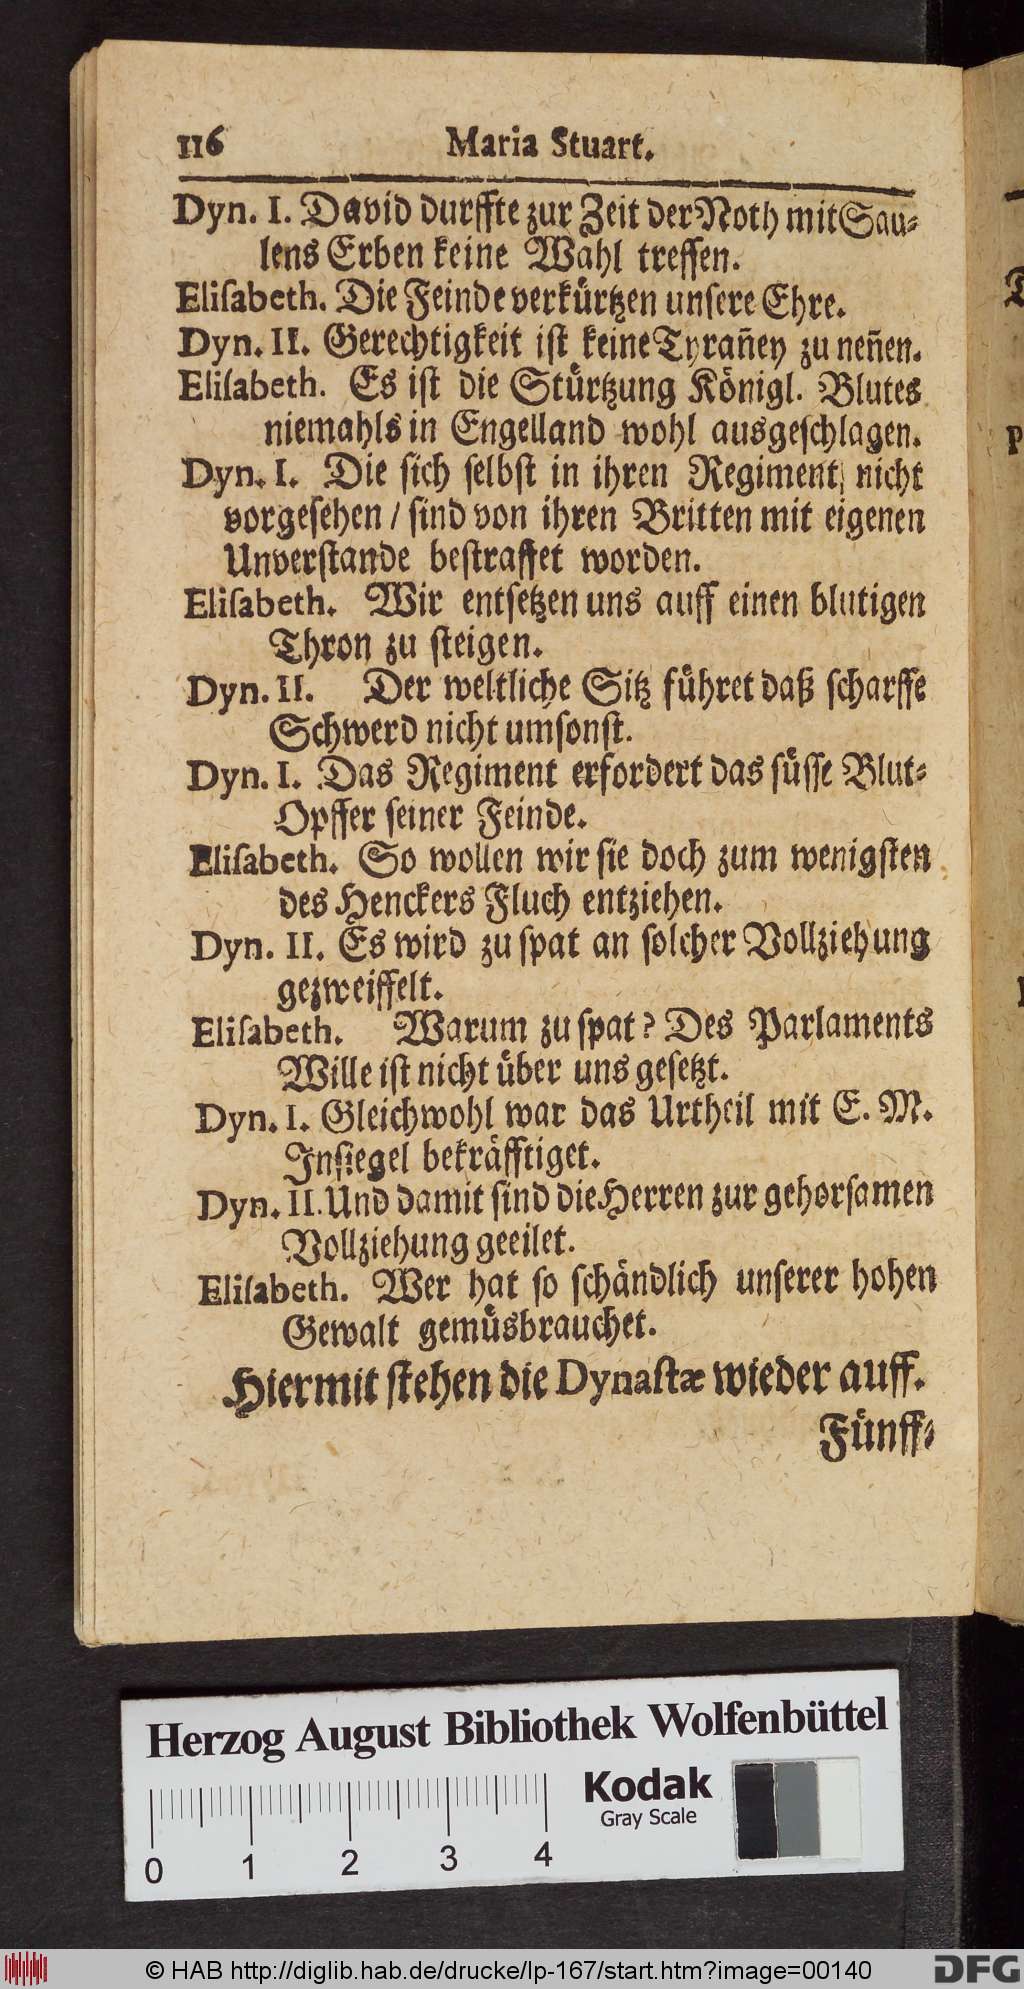 116 Maria Stuart.
Dyn. I. David durffte zur Zeit der Noth mit Sau⸗
lens Erben keine Wahl treffen.
Eliſabeth. Die Feinde verkürtzen unſere Ehre.
Dyn. II. Gerechtigkeit iſt keine Tyrañey zu neñen.
Eliſabeth. Es iſt die Stürtzung Königl. Blutes
niemahls in Engelland wohl ausgeſchlagen.
Dyn. I. Die ſich ſelbſt in ihren Regiment nicht
vorgeſehen / ſind von ihren Britten mit eigenen
Unverſtande beſtraffet worden.
Eliſabeth. Wir entſetzen uns auff einen blutigen
Thron zu ſteigen.
Dyn. II. Der weltliche Sitz führet daß ſcharffe
Schwerd nicht umſonſt.
Dyn. I. Das Regiment erfordert das ſüſſe Blut⸗
Opffer ſeiner Feinde.
Eliſabeth. So wollen wir ſie doch zum wenigſten
des Henckers Fluch entziehen.
Dyn. II. Es wird zu ſpat an ſolcher Vollziehung
gezweiffelt.
Eliſabeth. Warum zu ſpat? Des Parlaments
Wille iſt nicht über uns geſetzt.
Dyn. I. Gleichwohl war das Urtheil mit E. M.
Inſiegel bekräfftiget.
Dyn. II. Und damit ſind die Herren zur gehorſamen
Vollziehung geeilet.
Eliſabeth. Wer hat ſo ſchändlich unſerer hohen
Gewalt gemüsbrauchet.
Hiermit ſtehen die Dynaſtæ wieder auff.
Fünff⸗
Herzog August Bibliothek Wolfenbüttel
Kodak
Gray Scale
0 1 2 3 4
© HAB http://diglib.hab.de/drucke/lp-167/start.htm?image=00140
DFG